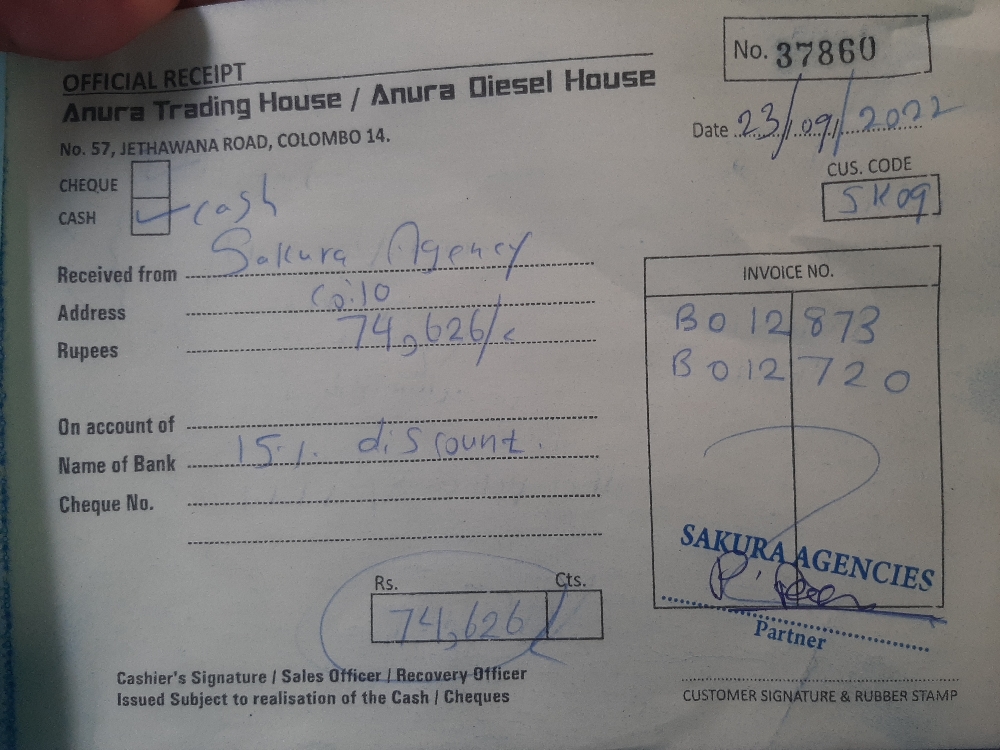 OFFICIAL RECEIPT
No. 37860
Anura Trading House / Anura Diesel House
No. 57, JETHAWANA ROAD, COLOMBO 14.
Date 23/09/2022
CUS. CODE
SK09
CHEQUE
CASH ✓ cash
Received from Sakura Agency
Address Co:10
Rupees 74,626/-
INVOICE NO.
B012873
B012720
On account of
Name of Bank 15% discount.
Cheque No.
SAKURA AGENCIES
Partner
Rs. Cts.
74,626
Cashier's Signature / Sales Officer / Recovery Officer
Issued Subject to realisation of the Cash / Cheques
CUSTOMER SIGNATURE & RUBBER STAMP